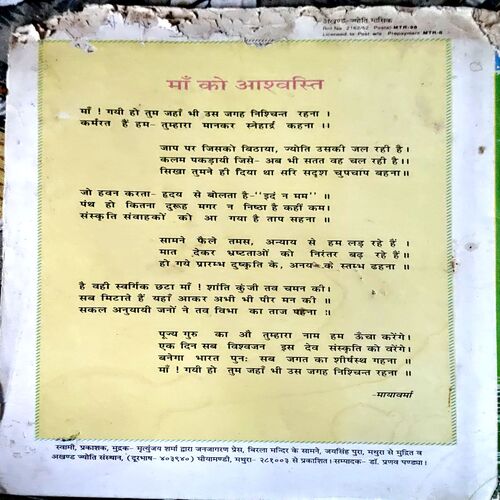 अखण्ड-ज्योति मासिक
Licensed to Post w/o Prepayment MTR-8
माँ को आश्वस्ति
माँ ! गयी हो तुम जहाँ भी उस जगह निश्चिन्त रहना ।
कर्मरत हैं हम- तुम्हारा मानकर स्नेहार्द्र कहना ।।
जाप पर जिसको बिठाया, ज्योति उसकी जल रही है।
कलम पकड़ायी जिसे- अब भी सतत वह चल रही है।।
सिखा तुमने ही दिया था सरि सदृश चुपचाप बहना॥
जो हवन करता- हृदय से बोलता है-"इदं न मम" ॥
पंथ हो कितना दुरूह मगर न निष्ठा है कहीं कम।
संस्कृति संवाहकों को आ गया है ताप सहना ॥
सामने फैले तमस, अन्याय से हम लड़ रहे हैं ।
मात देकर भ्रष्टताओं को निरंतर बढ़ रहे हैं॥
हो गये प्रारम्भ दुष्कृति के, अनय- के स्तम्भ ढहना ॥
है वही स्वर्गिक छटा माँ ! शांति कुंजी तव चमन की।
सब मिटाते हैं यहाँ आकर अभी भी पीर मन की ॥
सकल अनुयायी जनों ने तव विभा का ताज पहना ॥
पूज्य गुरु का औ तुम्हारा नाम हम ऊँचा करेंगे।
एक दिन सब विश्वजन इस देव संस्कृति को वरेंगे।
बनेगा भारत पुनः सब जगत का शीर्षस्थ गहना ॥
माँ ! गयी हो तुम जहाँ भी उस जगह निश्चिन्त रहना ॥
-मायावर्मा
स्वामी, प्रकाशक, मुद्रक- मृत्युंजय शर्मा द्वारा जनजागरण प्रेस, बिरला मन्दिर के सामने, जयसिंह पुरा, मथुरा से मुद्रित व
अखण्ड ज्योति संस्थान, (दूरभाष- ४०३९४०) घीयामण्डी, मथुरा- २८१००३ से प्रकाशित। सम्पादक- डॉ. प्रणव पण्ड्या।